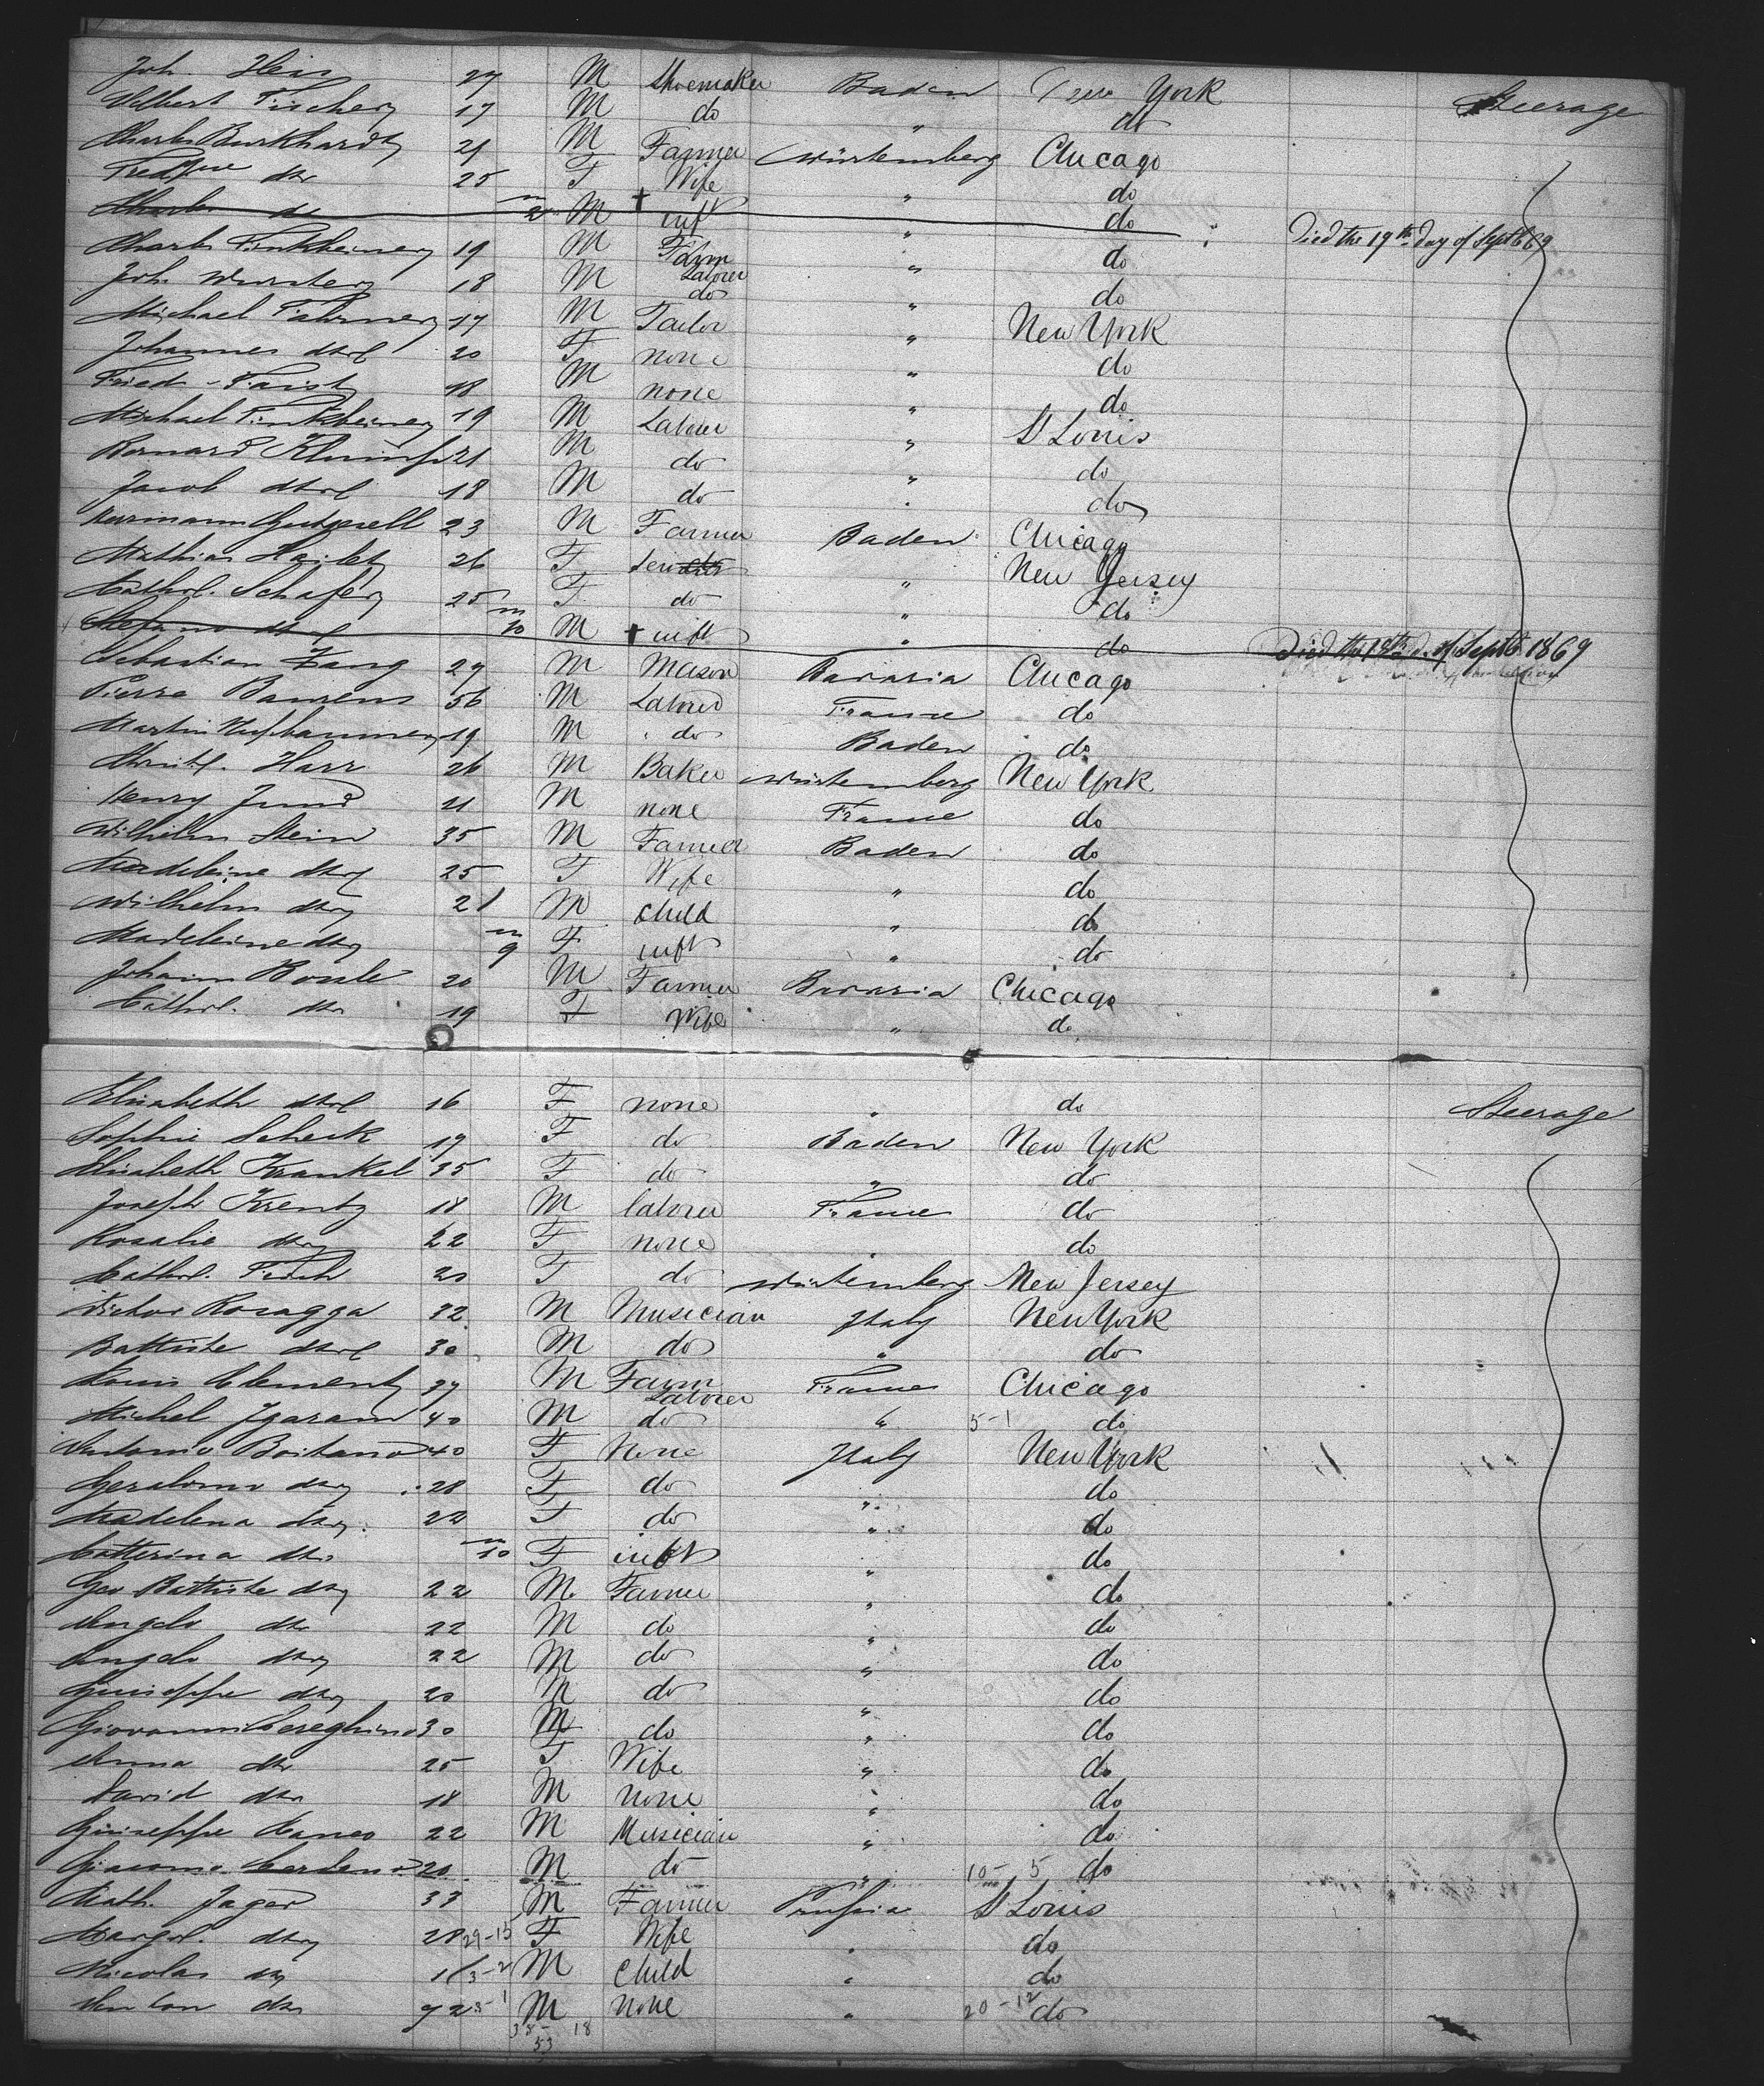 Joh. Heis 27 M Shoemaker Baden New York Steerage
Albert Fischer 17 M do " do
Charles Burkhardt 21 M Farmer Würtemberg Chicago
dto 25 F Wife " do
Charles do m 2 M + inft " do Died the 19th day of Septb 69
Charles Finkbeiner 19 M Farm Laborer " do
Joh. Wurster 18 M do " do
Michael Fahrner 17 M Tailor " New York
Johannes dto 20 F none " do
Fried. Faist 18 M none " do
Michael Finkbeiner 19 M Laborer " St Louis
Bernard Klumpp 21 M do " do
Jacob dto 18 M do " do
Hermann Gutgsell 23 M Farmer Baden Chicago
Mathias 26 F " New Jersey
Cathr. Schafer 25 F do " do
Stefano dto m 10 M + inft " do Died the 18th d. of Septb 1869
Sebastian Zang 27 M Mason Bavaria Chicago
Pierre 56 M Laborer France do
Martin 19 M do Baden do
Christ. Harr 26 M Baker Würtemberg New York
Henry Jund 21 M none France do
Wilhelm Stein 35 M Farmer Baden do
Madeleine dto 25 F Wife " do
Wilhelm dto 2 / M Child " do
Madeleine dto m 9 F inft " do
Johann 20 M Farmer Bavaria Chicago
Cathr. dto 19 F Wife " do
Elisabeth dto 16 F none " do Steerage
Sophie Scheck 19 F do Baden New York
Elisabeth Krankel 35 F do " do
Joseph Krentz 18 M laborer France do
Rosalie dto 22 F none " do
Cathr. 20 F do Würtemberg New Jersey
Victor Roragga 32 M Musician Italy New York
Battiste dto 30 M do " do
Louis Clement 37 M Farm Laborer France Chicago
Michel 40 M do " 5-1 do
Antonio Boitano 40 F None Italy New York
Geralomo dto 28 F do " do
Madelena dto 22 F do " do
Catterina dto m 10 F inft " do
Geo Battiste dto 22 M Farmer " do
Angelo dto 22 M do " do
Angelo dto 22 M do " do
Guiseppe dto 20 M do " do
Giovanni Cereghino 30 M do " do
Anna dto 25 F Wife " do
David dto 18 M none " do
Giuseppe 22 M Musician " do
Giacomo 20 M do " 10- 5 do
Math. Jager 33 M Farmer Prussia St Louis
Margr. dto 28 29-15 F Wife " do
Nicolas dto 1/ 3-2 M Child " do
Anton dto 72 3-1 M none " 20-12 do
38- 18
53